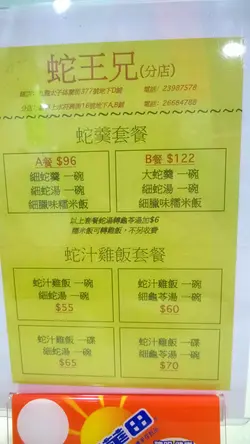 蛇王兄(分店)
太子高蘭街377號地下D舖 電話: 23987578
上水符興街16號地下A,B舖 電話: 26684788
蛇羹套餐
A餐 $96
細蛇羹 一碗
細蛇湯 一碗
細臘味糯米飯
B餐 $122
大蛇羹 一碗
細蛇湯 一碗
細臘味糯米飯
以上套餐蛇湯轉龜苓湯加$6
糯米飯可轉雞飯，不另收費
蛇汁雞飯套餐
蛇汁雞飯 一碗
細蛇湯 一碗
$55
蛇汁雞飯 一碗
細龜苓湯 一碗
$60
蛇汁雞飯 一碟
細蛇湯 一碗
$65
蛇汁雞飯 一碟
細龜苓湯 一碗
$70
華田